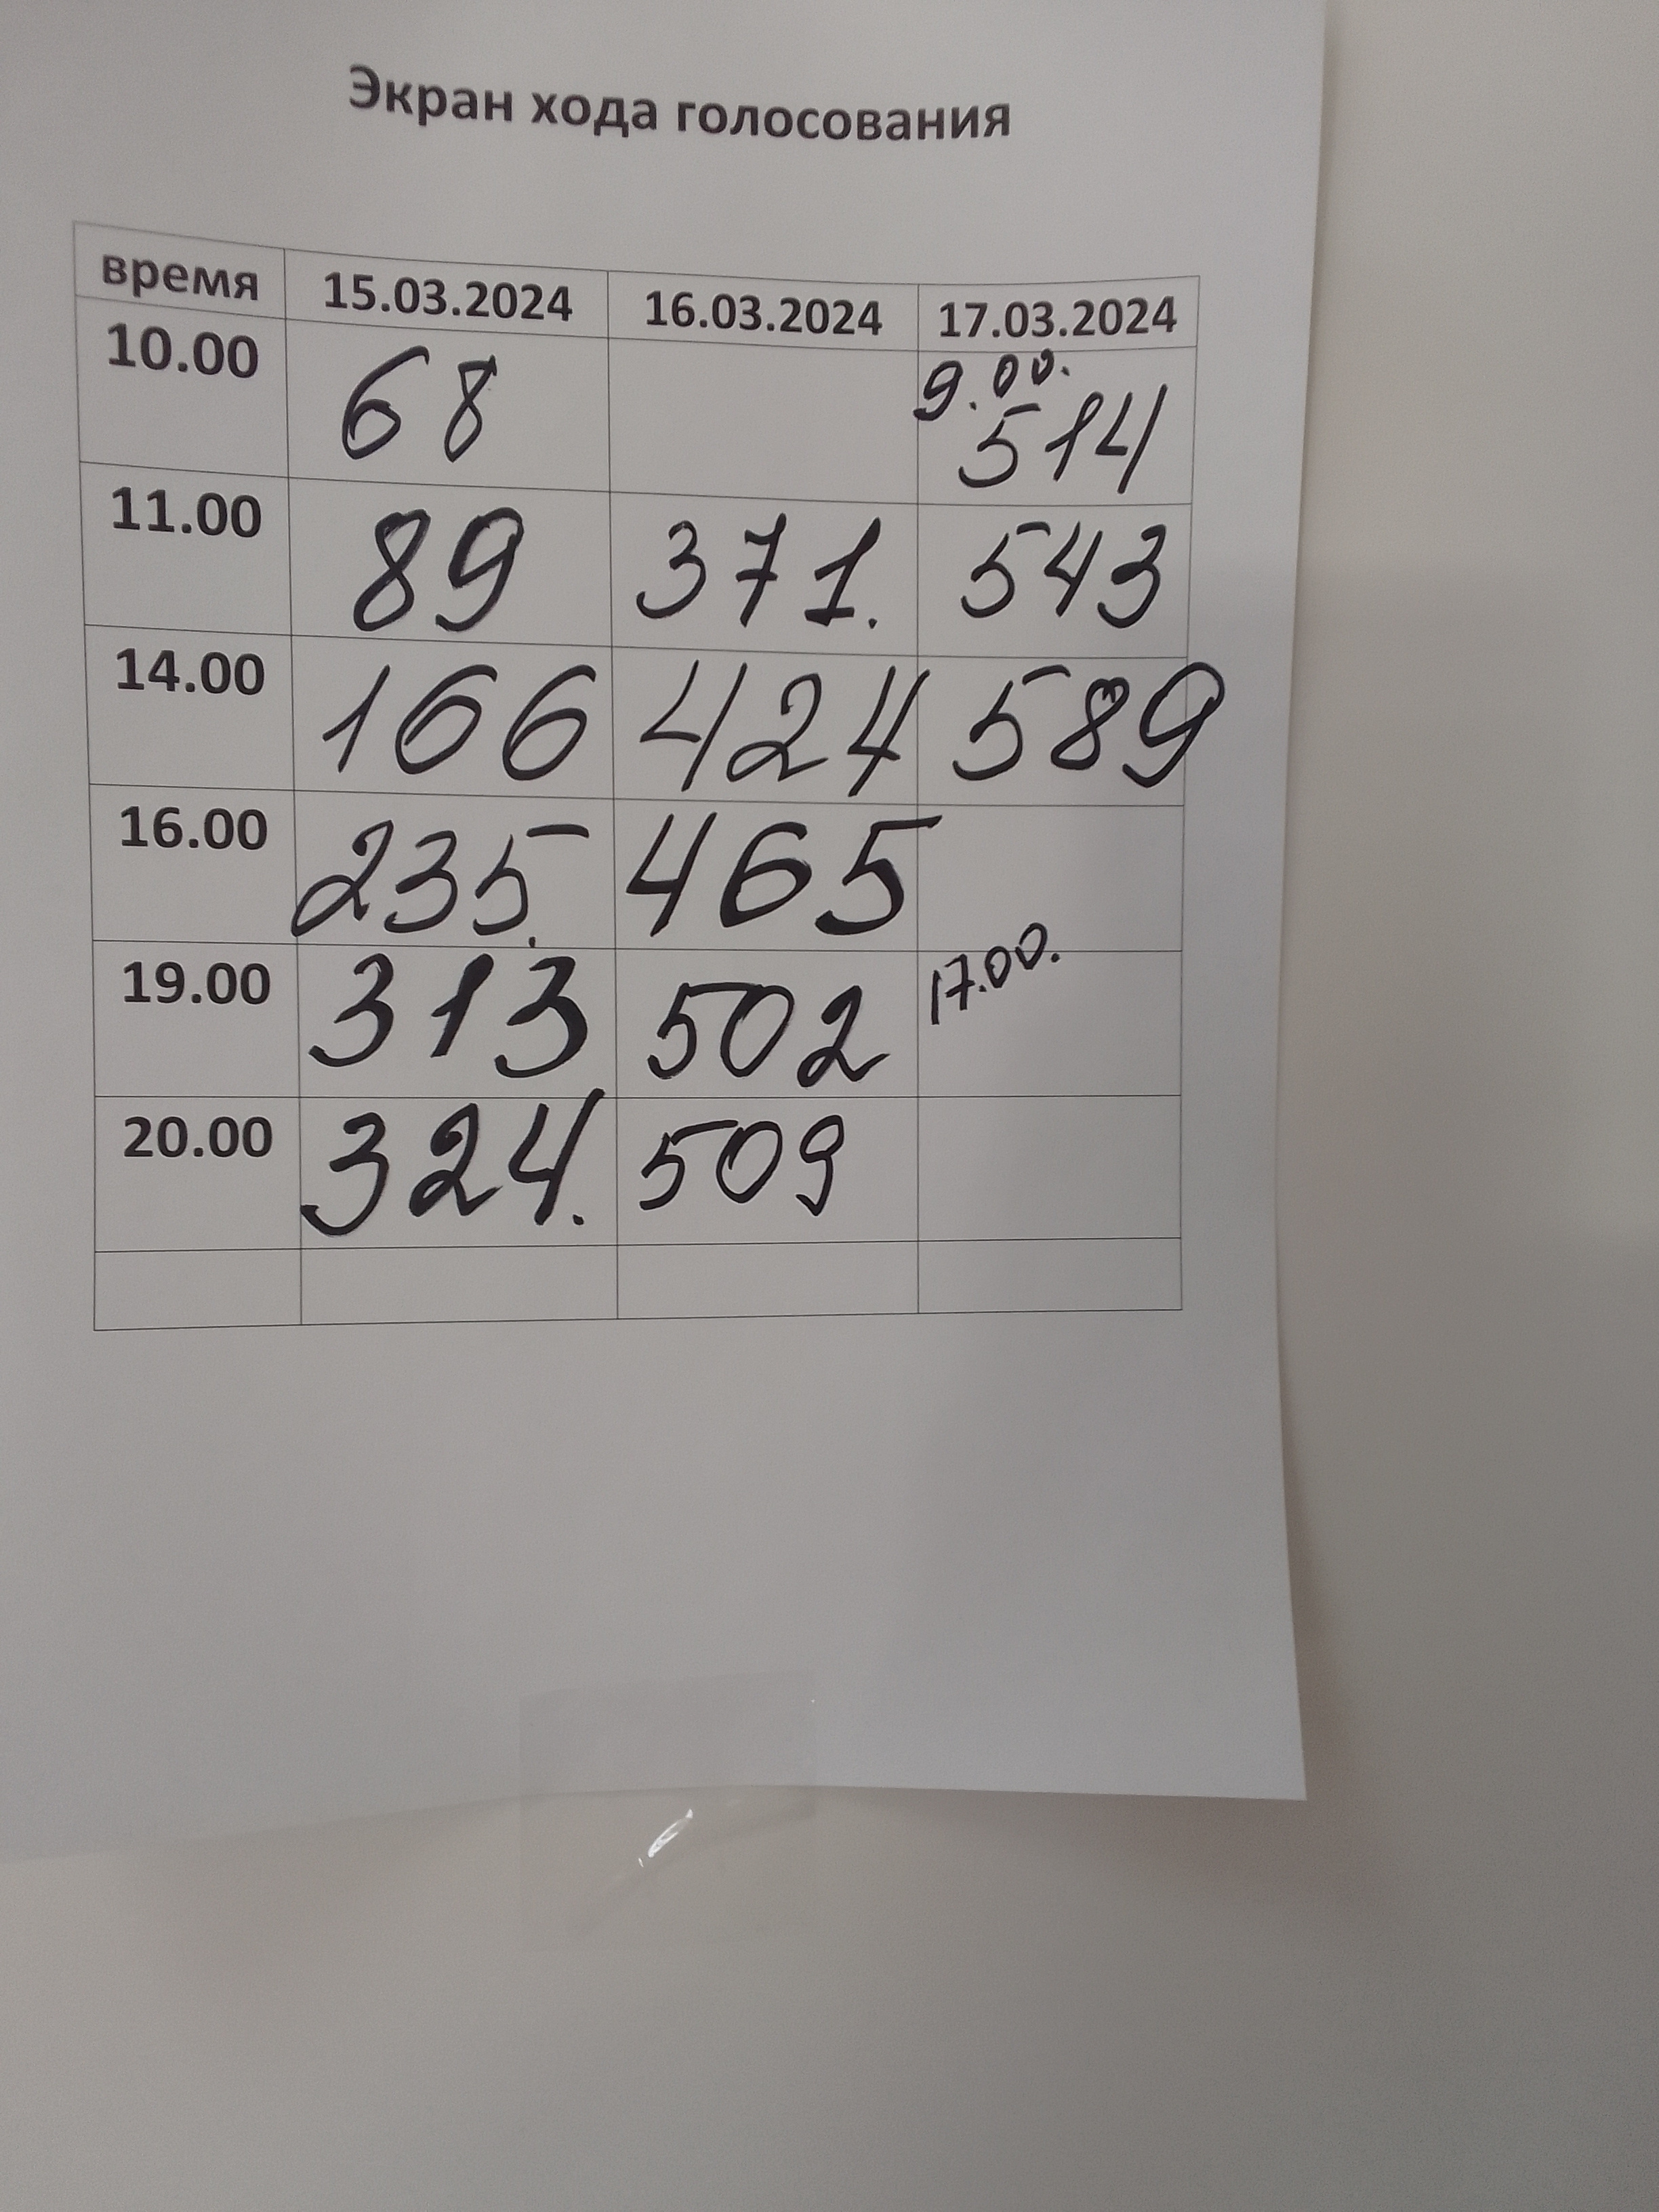 Экран хода голосования
время 15.03.2024 16.03.2024 17.03.2024
10.00 68 9.00. 514
11.00 89 371. 543
14.00 166 424 589
16.00 235. 465
19.00 313 502 17.00.
20.00 324. 509